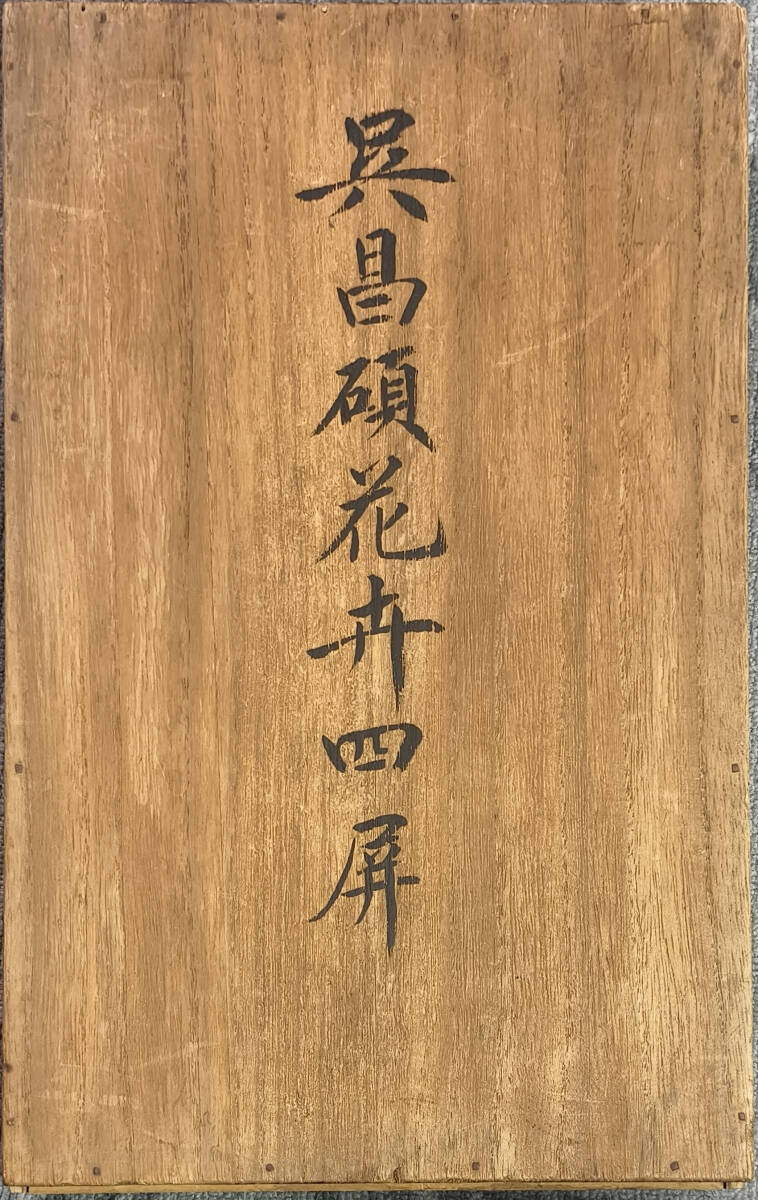 吳昌碩花卉四屏